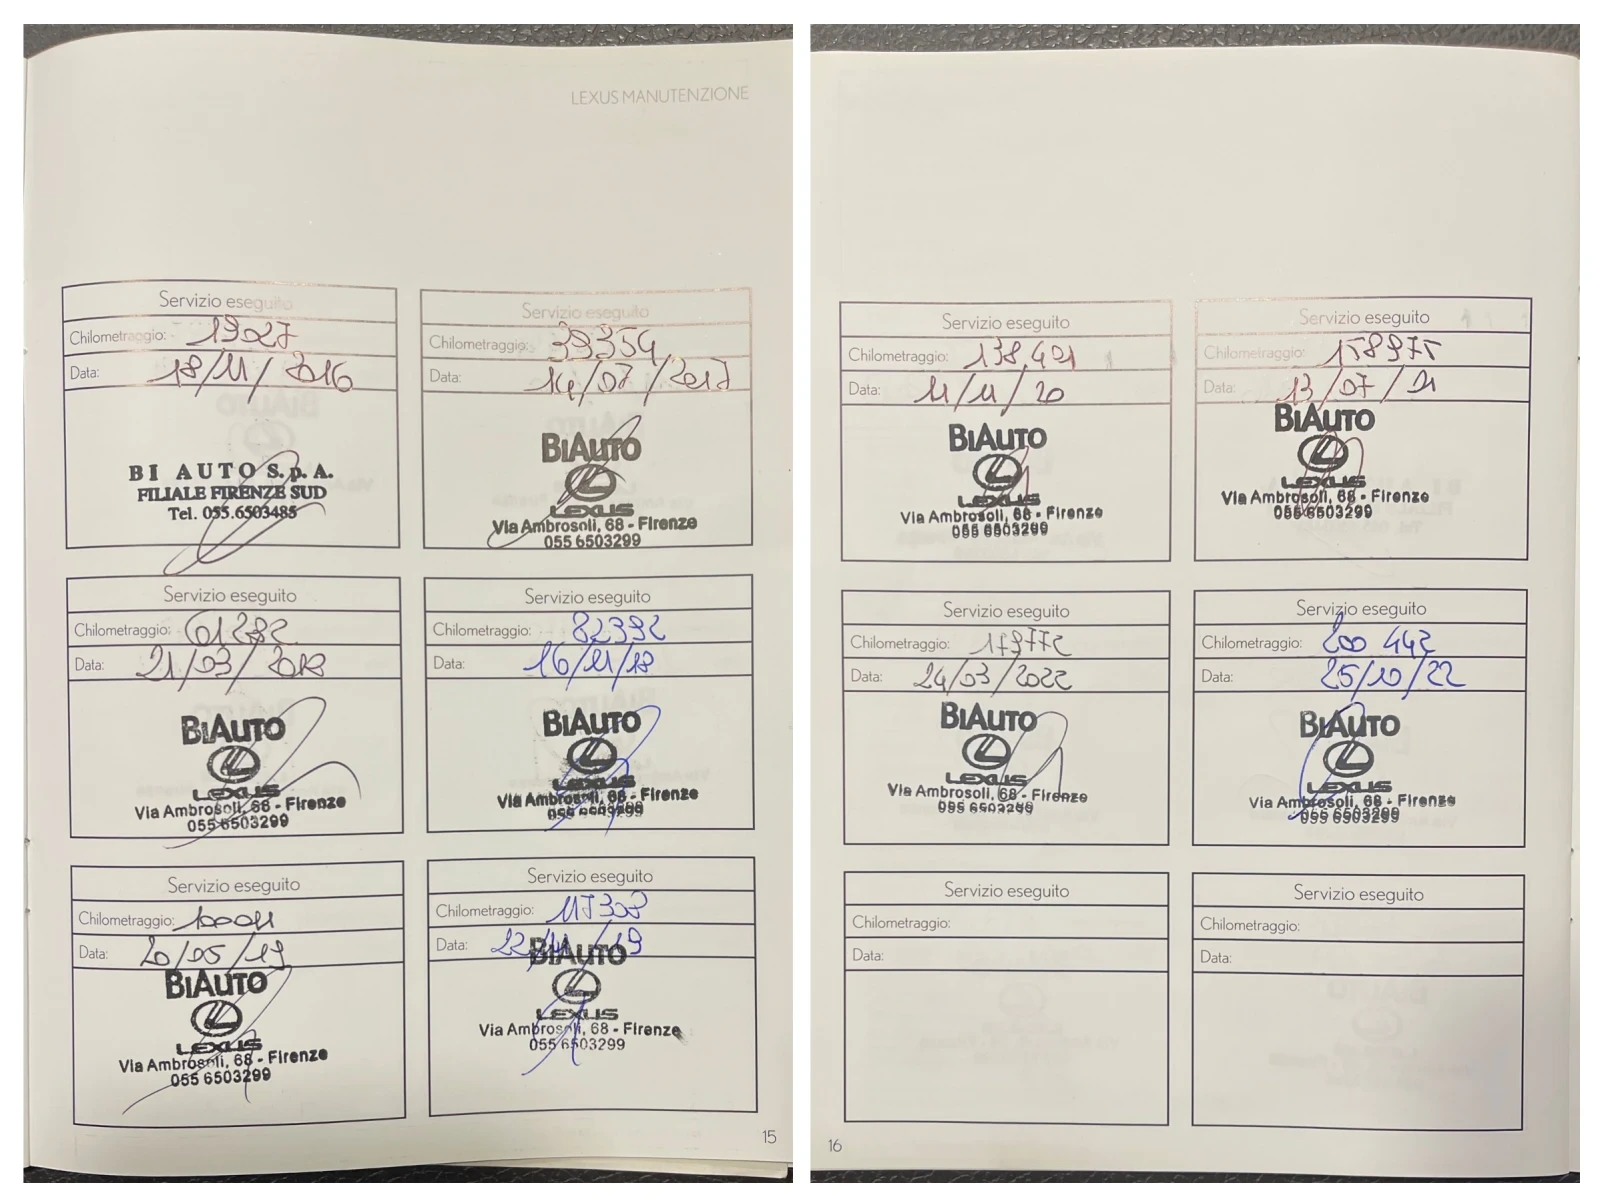 LEXUS MANUTENZIONE
Servizio eseguito
Chilometraggio: 19027
Data: 18/11/2016
BI AUTO S.p.A.
FILIALE FIRENZE SUD
Tel. 055.6503485
Servizio eseguito
Chilometraggio: 39354
Data: 14/07/2017
BIAUTO
LEXUS
Via Ambrosoli, 68 - Firenze
055 6503299
Servizio eseguito
Chilometraggio: 61282
Data: 21/03/2018
BIAUTO
LEXUS
Via Ambrosoli, 68 - Firenze
055 6503299
Servizio eseguito
Chilometraggio: 82392
Data: 16/11/18
BIAUTO
LEXUS
Via Ambrosoli, 68 - Firenze
055 6503299
Servizio eseguito
Chilometraggio: 100011
Data: 20/05/19
BIAUTO
LEXUS
Via Ambrosoli, 68 - Firenze
055 6503299
Servizio eseguito
Chilometraggio:
Data: 22/11/19
BIAUTO
LEXUS
Via Ambrosoli, 68 - Firenze
055 6503299
15
Servizio eseguito
Chilometraggio: 138.401
Data: 11/11/20
BIAUTO
LEXUS
Via Ambrosoli, 68 - Firenze
055 6503299
Servizio eseguito
Chilometraggio: 158975
Data: 13/07/21
BIAUTO
LEXUS
Via Ambrosoli, 68 - Firenze
055 6503299
Servizio eseguito
Chilometraggio: 179772
Data: 24/03/2022
BIAUTO
LEXUS
Via Ambrosoli, 68 - Firenze
055 6503299
Servizio eseguito
Chilometraggio: 200 442
Data: 25/10/22
BIAUTO
Via Ambrosoli, 68 - Firenze
055 6503299
Servizio eseguito
Chilometraggio:
Data:
Servizio eseguito
Chilometraggio:
Data:
16